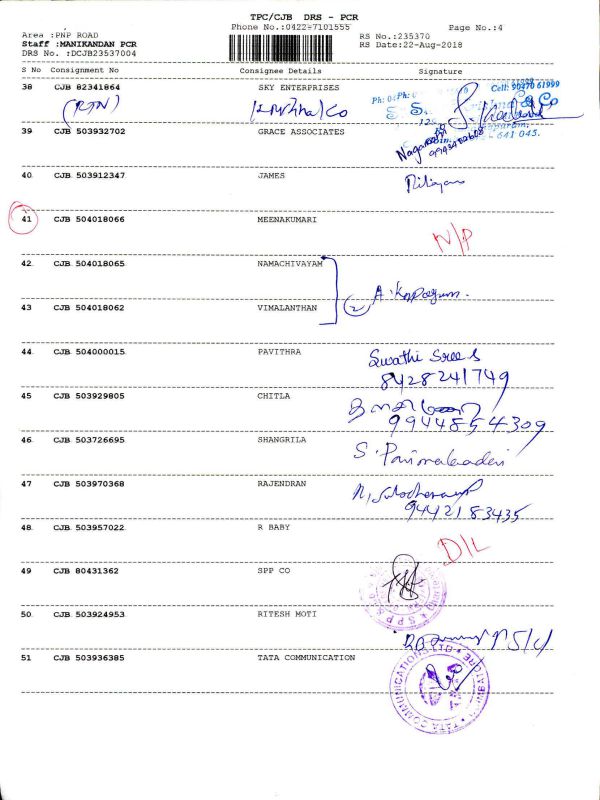 TPC/CJB DRS - PCR
Phone No.:0422-7101555
Page No.:4
Area :PNP ROAD
RS No.:235370
Staff :MANIKANDAN PCR
RS Date:22-Aug-2018
DRS No. :DCJB23537004
S No Consignment No Consignee Details Signature
38 CJB 82341864 SKY ENTERPRISES
Cell: 90470 61999
(RTN)
& Co
641 045.
39 CJB 503932702 GRACE ASSOCIATES
40. CJB 503912347 JAMES
41 CJB 504018066 MEENAKUMARI
N/P
42. CJB 504018065 NAMACHIVAYAM
2
43 CJB 504018062 VIMALANTHAN
44. CJB 504000015 PAVITHRA
Swathi Sree S
8428241749
45 CJB 503929805 CHITLA
9944854309
46. CJB 503726695 SHANGRILA
47 CJB 503970368 RAJENDRAN
9442183435
48. CJB 503957022 R BABY
D/L
49 CJB 80431362 SPP CO
50. CJB 503924953 RITESH MOTI
51 CJB 503936385 TATA COMMUNICATION
TATA COMMUNICATIONS LTD